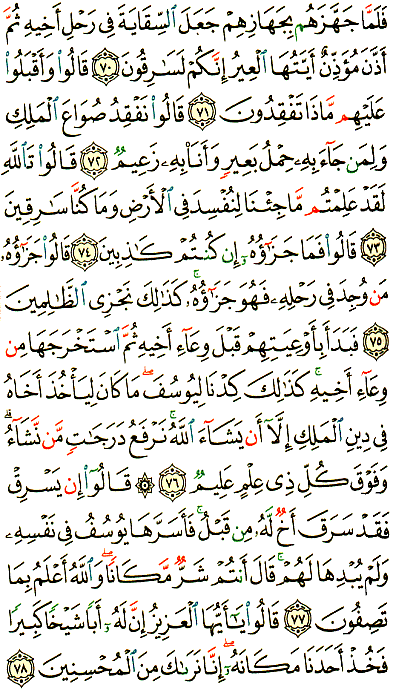 فَلَمَّا جَهَّزَهُم بِجَهَازِهِمْ جَعَلَ ٱلسِّقَايَةَ فِى رَحْلِ أَخِيهِ ثُمَّ
أَذَّنَ مُؤَذِّنٌ أَيَّتُهَا ٱلْعِيرُ إِنَّكُمْ لَسَٰرِقُونَ ﴿٧٠﴾ قَالُوا۟ وَأَقْبَلُوا۟
عَلَيْهِم مَّاذَا تَفْقِدُونَ ﴿٧١﴾ قَالُوا۟ نَفْقِدُ صُوَاعَ ٱلْمَلِكِ
وَلِمَن جَآءَ بِهِۦ حِمْلُ بَعِيرٍ وَأَنَا۠ بِهِۦ زَعِيمٌ ﴿٧٢﴾ قَالُوا۟ تَٱللَّهِ
لَقَدْ عَلِمْتُم مَّا جِئْنَا لِنُفْسِدَ فِى ٱلْأَرْضِ وَمَا كُنَّا سَٰرِقِينَ
﴿٧٣﴾ قَالُوا۟ فَمَا جَزَٰٓؤُهُۥٓ إِن كُنتُمْ كَٰذِبِينَ ﴿٧٤﴾ قَالُوا۟ جَزَٰٓؤُهُۥ
مَن وُجِدَ فِى رَحْلِهِۦ فَهُوَ جَزَٰٓؤُهُۥ ۚ كَذَٰلِكَ نَجْزِى ٱلظَّٰلِمِينَ
﴿٧٥﴾ فَبَدَأَ بِأَوْعِيَتِهِمْ قَبْلَ وِعَآءِ أَخِيهِ ثُمَّ ٱسْتَخْرَجَهَا مِن
وِعَآءِ أَخِيهِ ۚ كَذَٰلِكَ كِدْنَا لِيُوسُفَ ۖ مَا كَانَ لِيَأْخُذَ أَخَاهُ
فِى دِينِ ٱلْمَلِكِ إِلَّآ أَن يَشَآءَ ٱللَّهُ ۚ نَرْفَعُ دَرَجَٰتٍ مَّن نَّشَآءُ ۗ
وَفَوْقَ كُلِّ ذِى عِلْمٍ عَلِيمٌ ﴿٧٦﴾ ۞ قَالُوٓا۟ إِن يَسْرِقْ
فَقَدْ سَرَقَ أَخٌ لَّهُۥ مِن قَبْلُ ۚ فَأَسَرَّهَا يُوسُفُ فِى نَفْسِهِۦ
وَلَمْ يُبْدِهَا لَهُمْ ۚ قَالَ أَنتُمْ شَرٌّ مَّكَانًا ۖ وَٱللَّهُ أَعْلَمُ بِمَا
تَصِفُونَ ﴿٧٧﴾ قَالُوا۟ يَٰٓأَيُّهَا ٱلْعَزِيزُ إِنَّ لَهُۥٓ أَبًا شَيْخًا كَبِيرًا
فَخُذْ أَحَدَنَا مَكَانَهُۥٓ ۖ إِنَّا نَرَىٰكَ مِنَ ٱلْمُحْسِنِينَ ﴿٧٨﴾